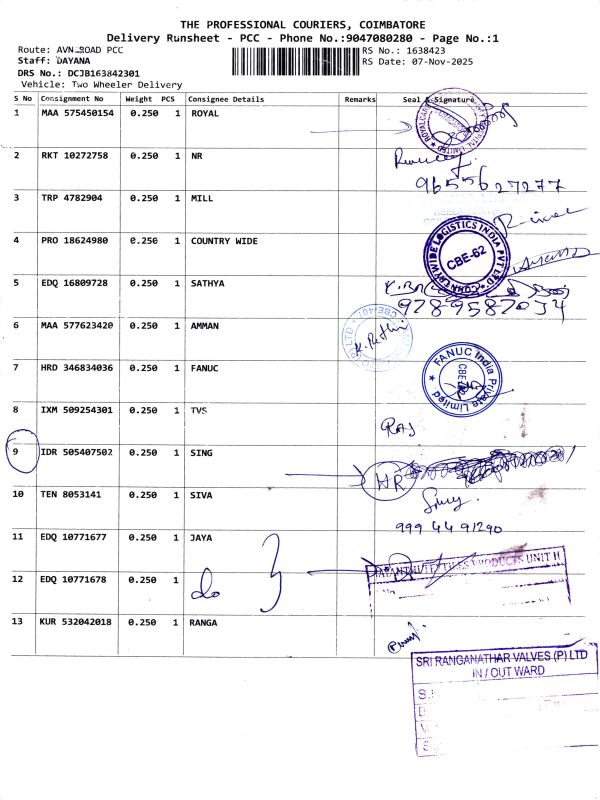 THE PROFESSIONAL COURIERS, COIMBATORE
Delivery Runsheet - PCC - Phone No.:9047080280 - Page No.:1
Route: AVN ROAD PCC
RS No.: 1638423
Staff: DAYANA
RS Date: 07-Nov-2025
DRS No.: DCJB163842301
Vehicle: Two Wheeler Delivery
S No Consignment No Weight PCS Consignee Details Remarks Seal & Signature
1 MAA 575450154 0.250 1 ROYAL
2 RKT 10272758 0.250 1 NR
9655627277
3 TRP 4782904 0.250 1 MILL
4 PRO 18624980 0.250 1 COUNTRY WIDE
COUNTRYWIDE LOGISTICS INDIA PVT LTD
CBE-62
5 EDQ 16809728 0.250 1 SATHYA
9789587034
6 MAA 577623420 0.250 1 AMMAN
7 HRD 346834036 0.250 1 FANUC
FANUC India Private Limited
CBE
8 IXM 509254301 0.250 1 TVS
RAJ
9 IDR 505407502 0.250 1 SING
HR
10 TEN 8053141 0.250 1 SIVA
999 44 91290
11 EDQ 10771677 0.250 1 JAYA
PRODUCTS UNIT II
12 EDQ 10771678 0.250 1 do
No
13 KUR 532042018 0.250 1 RANGA
SRI RANGANATHAR VALVES (P) LTD
IN / OUT WARD